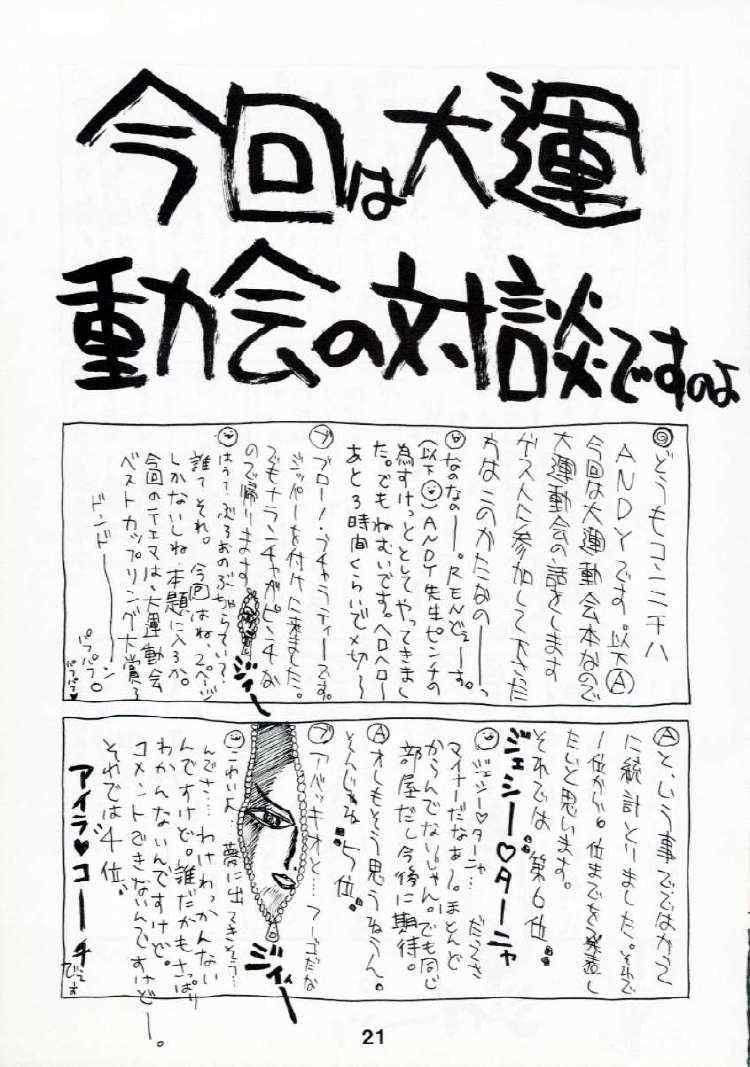 今回は大運
動会の対談ですのよ
どうもコンニチハ
ANDYです。以下Ⓐ
今回は大運動会本なので
大運動会の話をします
ゲストに参加して下さた
方はこのかたなのーーっ
なのなのー。RENどぇーす。
(以下 )ANDY先生ピンチの
為すけっととしてやってきまし
た。でもねむいです。ヘロヘロ〜
あと3時間くらいで〆切〜
ブ ブローノ・ブチャラティーズです。
ジッパーを付けに来ました。
でもナランチャがピンチな
ので帰ります。
ジィーー
はうう ぶろおのぶちゃらてい?
誰てそれ。今回はね、2ページ
しかないしね 本題に入ろか。
今回のテェマは、大運動会
ベストカップリング大賞〜
ドンドーーーン
パフパフ〇
パフパフ♥
Ⓐという事でではがきで
に統計とりました。そんで
1位から6位までを発表し
たいと思います。
それでは 第6位
ジェシー♡ターニャ
ジェシー♡ターニャ…
マイナーだなぁー。ほとんど
からんでないじゃん。でも同じ
部屋だし今後に期待。
Ⓐオレもそう思うねうん。
そんじゃね 5位。
ブ アバッキオと…フーゴだな
ジィィー
こわいよ 夢に出てきそう…
んでさ…わけわっかんない
んですけど。誰だがもさっぱり
わかんないんですけど。
コメントできないんですけどー。
それでは4位。
アイラ♥コーチでぇす
21